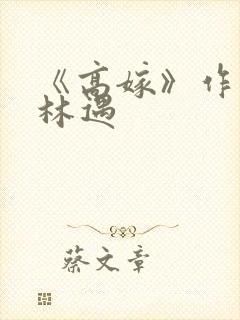 《高嫁》作
林遇
蔡文章